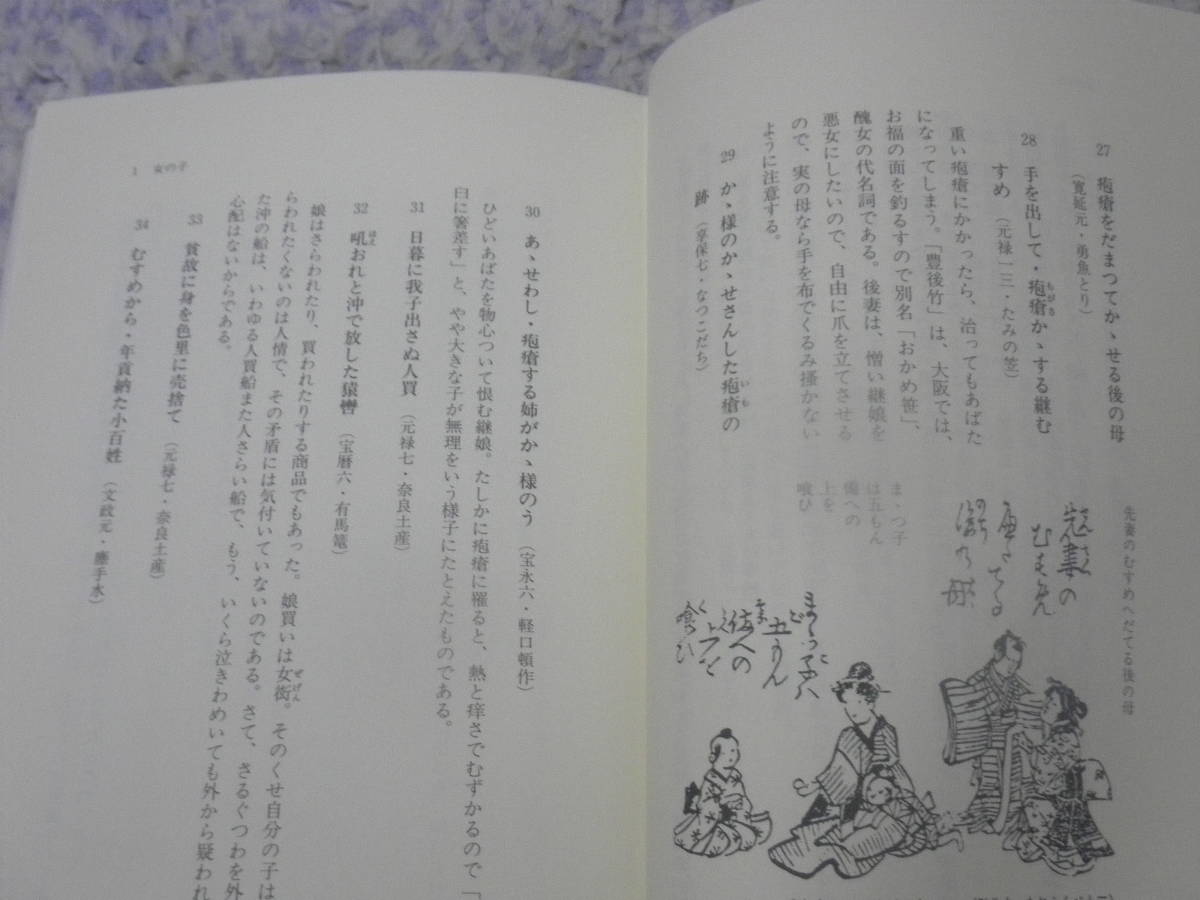 27 疱瘡をだまつてかゝせる後の母
（寛延元・勇魚とり）
28 手を出して・疱瘡かゝする継む
もがさ
すめ（元禄一三・たみの笠）
重い疱瘡にかかったら、治ってもあばた
になってしまう。「豊後竹」は、大阪では、
お福の面を釣るすので別名「おかめ笹」、
醜女の代名詞である。後妻は、憎い継娘を
悪女にしたいので、自由に爪を立てさせる
ので、実の母なら手を布でくるみ掻かない
ように注意する。
29 かゝ様のかゝせさんした疱瘡の
いも
跡（享保七・なつこだち）
先妻のむすめへだてる後の母
先妻の
むすめ
へだてる
のちの母
まゝつ子
は五もん
備への
上を
喰ひ
30 あゝせわし・疱瘡する姉がかゝ様のう（宝永六・軽口頓作）
ひどいあばたを物心ついて恨む継娘。たしかに疱瘡に罹ると、熱と痒さでむずかるので「
臼に箸差す」と、やや大きな子が無理をいう様子にたとえたものである。
31 日暮に我子出さぬ人買（元禄七・奈良土産）
32 吼おれと沖で放した猿轡（宝暦六・有馬籠）
ほえ
娘はさらわれたり、買われたりする商品でもあった。娘買いは女衒。そのくせ自分の子は
ぜげん
らわれたくないのは人情で、その矛盾には気付いていないのである。さて、さるぐつわを外
た沖の船は、いわゆる人買船また人さらい船で、もう、いくら泣きわめいても外から疑われ
心配はないからである。
33 貧故に身を色里に売捨て（元禄七・奈良土産）
34 むすめから・年貢納た小百姓（文政元・塵手水）
1 女の子